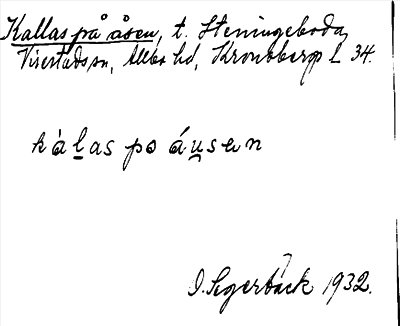 Kallas på åsen, t. Steningeboda,
Virestads sn, Allbo hd, Kronobergs l. 34.
kàlas po áusen
D. Segerbäck 1932.